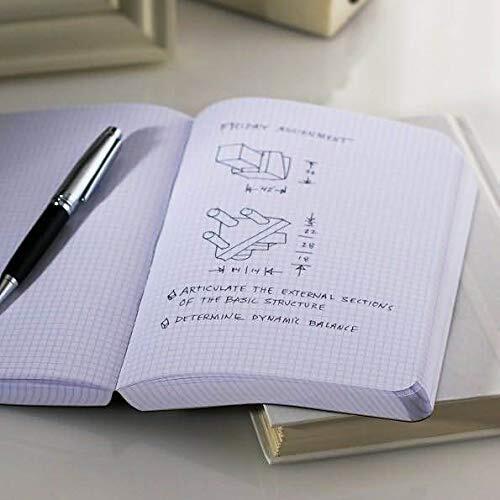 FRIDAY ASSIGNMENT
42
22
28
18
14 | 14
ARTICULATE THE EXTERNAL SECTIONS
OF THE BASIC STRUCTURE
DETERMINE DYNAMIC BALANCE